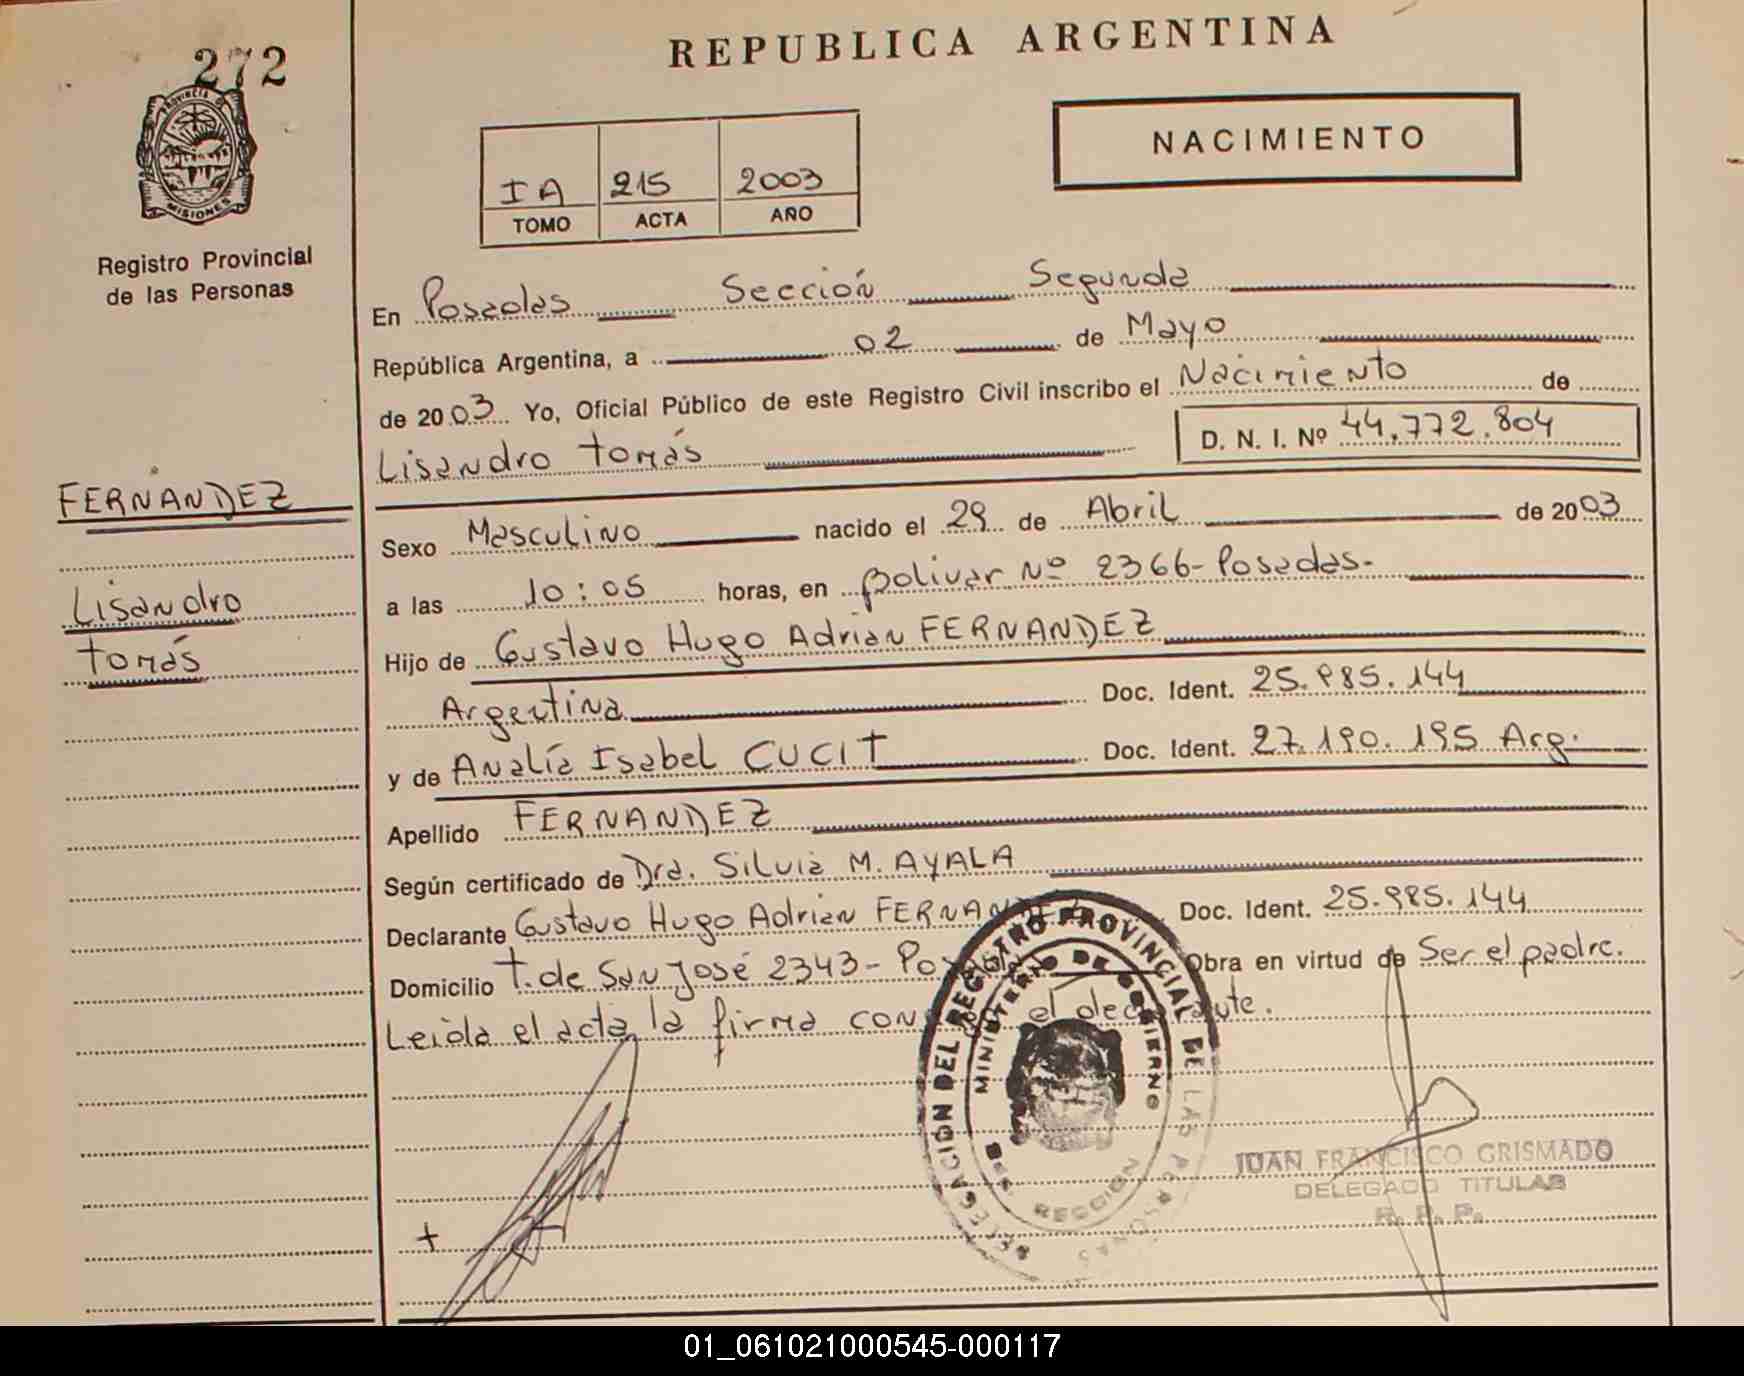 272
PROVINCIA DE
MISIONES
Registro Provincial
de las Personas
FERNANDEZ
Lisandro
Tomás
REPUBLICA ARGENTINA
NACIMIENTO
IA 215 2003
TOMO ACTA AÑO
En Posadas Sección Segunda
República Argentina, a 02 de Mayo
de 2003 Yo, Oficial Público de este Registro Civil inscribo el Nacimiento de
Lisandro Tomás D. N. I. Nº 44.772.804
Sexo Masculino nacido el 29 de Abril de 2003
a las 10:05 horas, en Bolivar Nº 2366-Posadas.-
Hijo de Gustavo Hugo Adrian FERNANDEZ
Argentina Doc. Ident. 25.985.144
y de Analía Isabel CUCIT Doc. Ident. 27.190.195 Arg.
Apellido FERNANDEZ
Según certificado de Dra. Silvia M. AYALA
Declarante Gustavo Hugo Adrian FERNANDEZ Doc. Ident. 25.985.144
Domicilio T. de San José 2343- Obra en virtud de Ser el padre.
Leida el acta la firma el declarante.
DELEGACIÓN DEL REGISTRO PROVINCIAL DE LAS PERSONAS
MINISTERIO DE GOBIERNO
JUAN FRANCISCO GRISMADO
DELEGADO TITULAR
R. P. P.
+
01_061021000545-000117